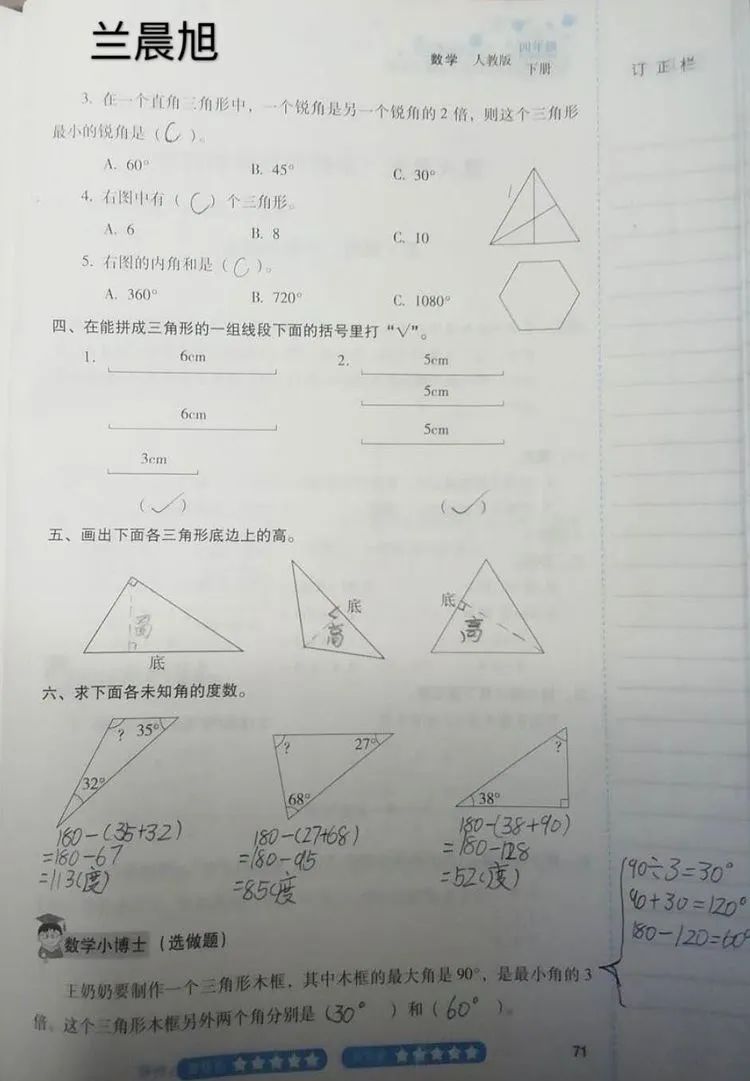 兰晨旭
数学 人教版 四年级
下册
订正栏
3. 在一个直角三角形中，一个锐角是另一个锐角的2倍，则这个三角形
最小的锐角是（C）。
A. 60° B. 45° C. 30°
4. 右图中有（C）个三角形。
A. 6 B. 8 C. 10
5. 右图的内角和是（C）。
A. 360° B. 720° C. 1080°
四、在能拼成三角形的一组线段下面的括号里打“√”。
1. 6cm 2. 5cm
5cm
6cm 5cm
3cm
（√） （√）
五、画出下面各三角形底边上的高。
底 底
高 高 高
底
六、求下面各未知角的度数。
? 35° ? 27° ?
32° 68° 38°
180-(35+32) 180-(27+68) 180-(38+90)
=180-67 =180-95 =180-128
=113(度) =85(度 =52(度)
90÷3=30°
90+30=120°
180-120=60°
数学小博士（选做题）
王奶奶要制作一个三角形木框，其中木框的最大角是90°，是最小角的3
倍。这个三角形木框另外两个角分别是（30°）和（60°）。
71